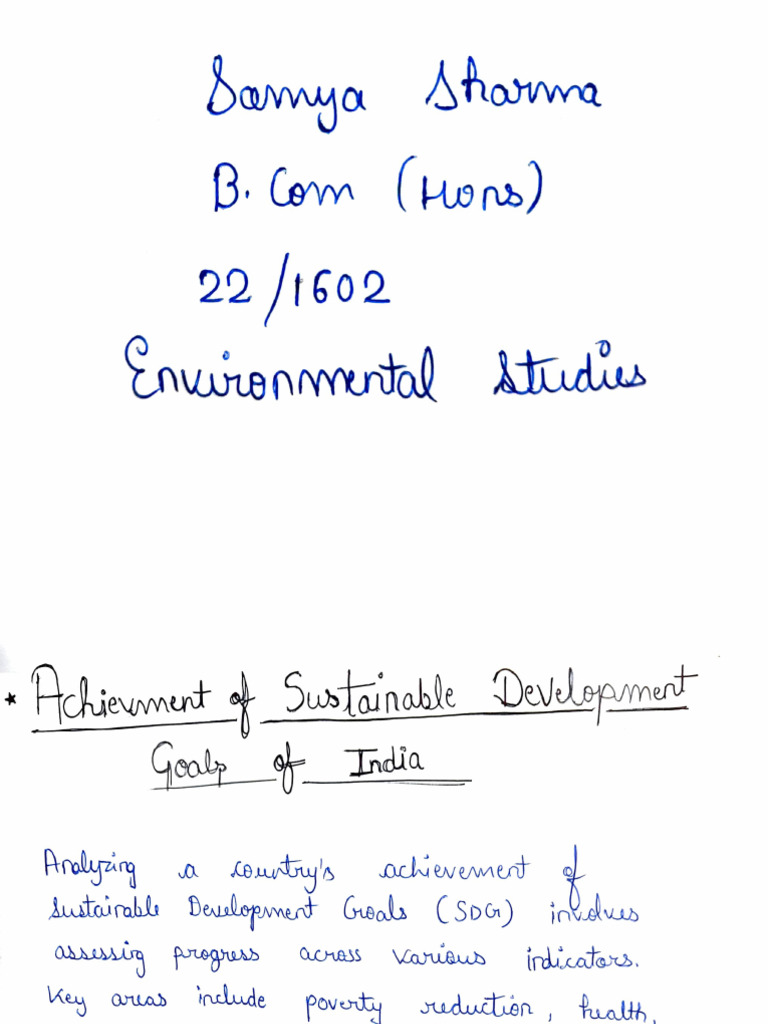 Samya Sharma
B. Com (Hons)
22/1602
Environmental Studies
* Achievment of Sustainable Development
Goals of India
Analyzing a country's achievement of
Sustainable Development Goals (SDG) involves
assessing progress across various indicators.
Key areas include poverty reduction, health,